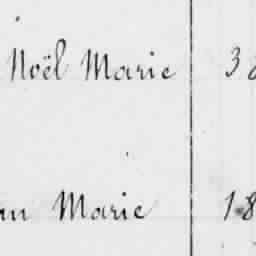 Noël Marie 3
Marie 18